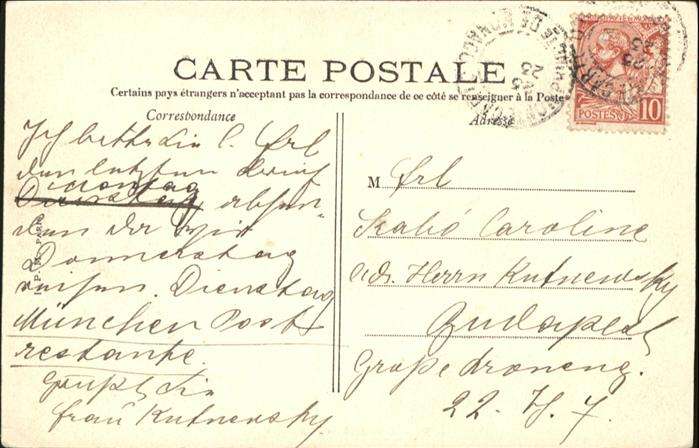 CARTE POSTALE
Certains pays étrangers n'acceptent pas la correspondance de ce côté se renseigner à la Poste
Correspondance
Adresse
Ich bitte Sie l. Frl
den letzten Brief
Montag
Dienstag absen-
den da wir
Donnerstag
reisen. Dienstag
München Post
restante.
Grüßt Sie
Frau Kutnewsky
M Frl
Szabó Caroline
adr. Herrn Kutnewsky
Budapest
22. II. 7
POSTES
10
23